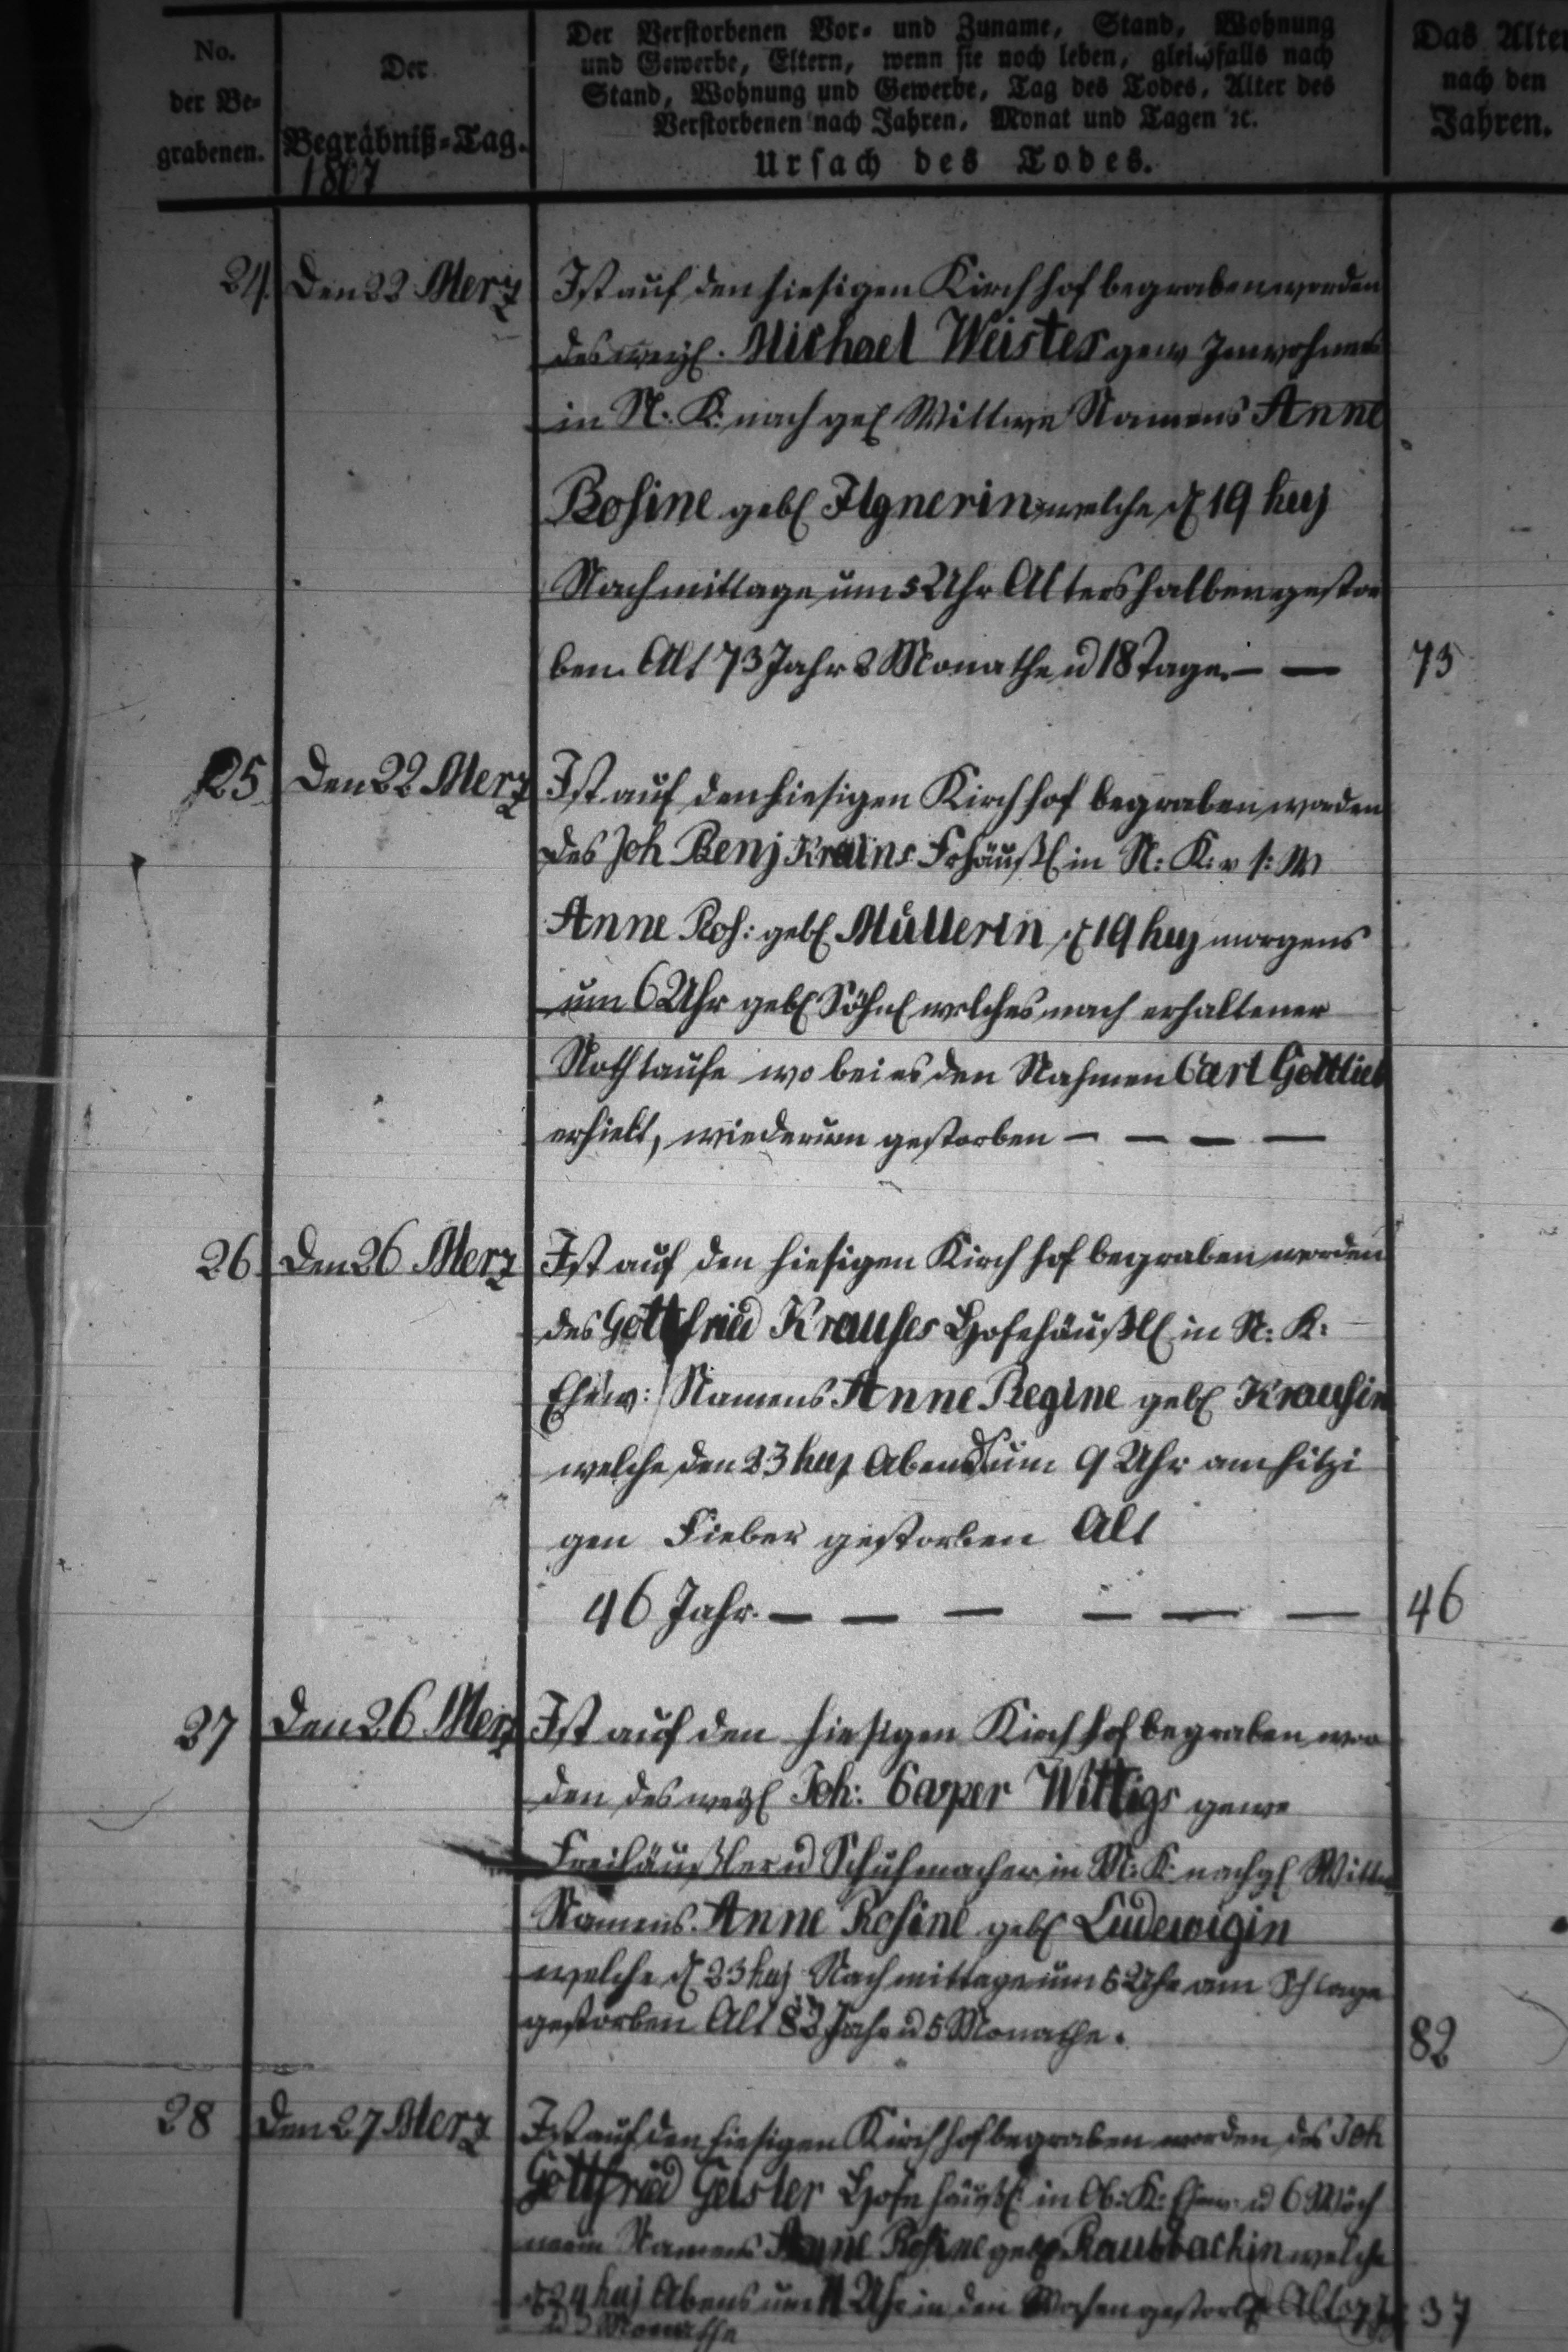 No.
der Be-
grabenen.
Der
Begräbniß-Tag.
1807
Der Verstorbenen Vor- und Zuname, Stand, Wohnung
und Gewerbe, Eltern, wenn sie noch leben, gleichfalls nach
Stand, Wohnung und Gewerbe, Tag des Todes, Alter des
Verstorbenen nach Jahren, Monat und Tagen ꝛc.
Ursach des Todes.
Das Alter
nach den
Jahren.
24. Den 22 Merz Ist auf den hiesigen Kirchhof begraben worden
des weyl. Michael Weistes gew Innwohners
in N: K: nach gel Wittwe Namens Anne
Rosine gebl Ilgnerin welche d 19 huj
Nachmittage um 5 Uhr Altershalben gestor
ben. Alt 73 Jahr 2 Monathe u 18 Tage. — — 73
25 Den 22 Merz Ist auf den hiesigen Kirchhof begraben worden
des Joh Benj Krauns Frhäußl in N: K: v s: W
Anne Ros: gebl Müllerin d 19 huj morgens
um 6 Uhr gebl Söhnl welches nach erhaltener
Nothtaufe wo bei es den Nahmen Carl Gottlieb
erhielt, wiederum gestorben — — — —
26 Den 26 Merz Ist auf den hiesigen Kirch hof begraben worden
des Gottfried Krauses Hofehäußl in N: K:
Ehew: Namens Anne Regine gebl Krausin
welche den 23 huj Abends um 9 Uhr am hitzi
gen Fieber gestorben Alt
46 Jahr. — — — — — — 46
27 Den 26 Merz Ist auf den hiesigen Kirchhof begraben wor
den des weyl Joh: Casper Wittigs gewe
Freihäußler u Schuhmacher in N: K: nachgl Wittwe
Namens Anne Rosine gebl Ludewigin
welche d 23 huj Nachmittage um 5 Uhr am Schlage
gestorben Alt 82 Jahr u 5 Monathe. 82
28 Den 27 Merz Ist auf den hiesigen Kirchhof begraben worden des Joh
Gottfried Geisler Hofehäußl in Ob: K: Ehew u 6 Wöch
nerin Namens Anne Rosine gebl Raubbachin welche
d 24 huj Abens um 11 Uhr in den Wochen gestorb Alt 37 J 37
Monathe